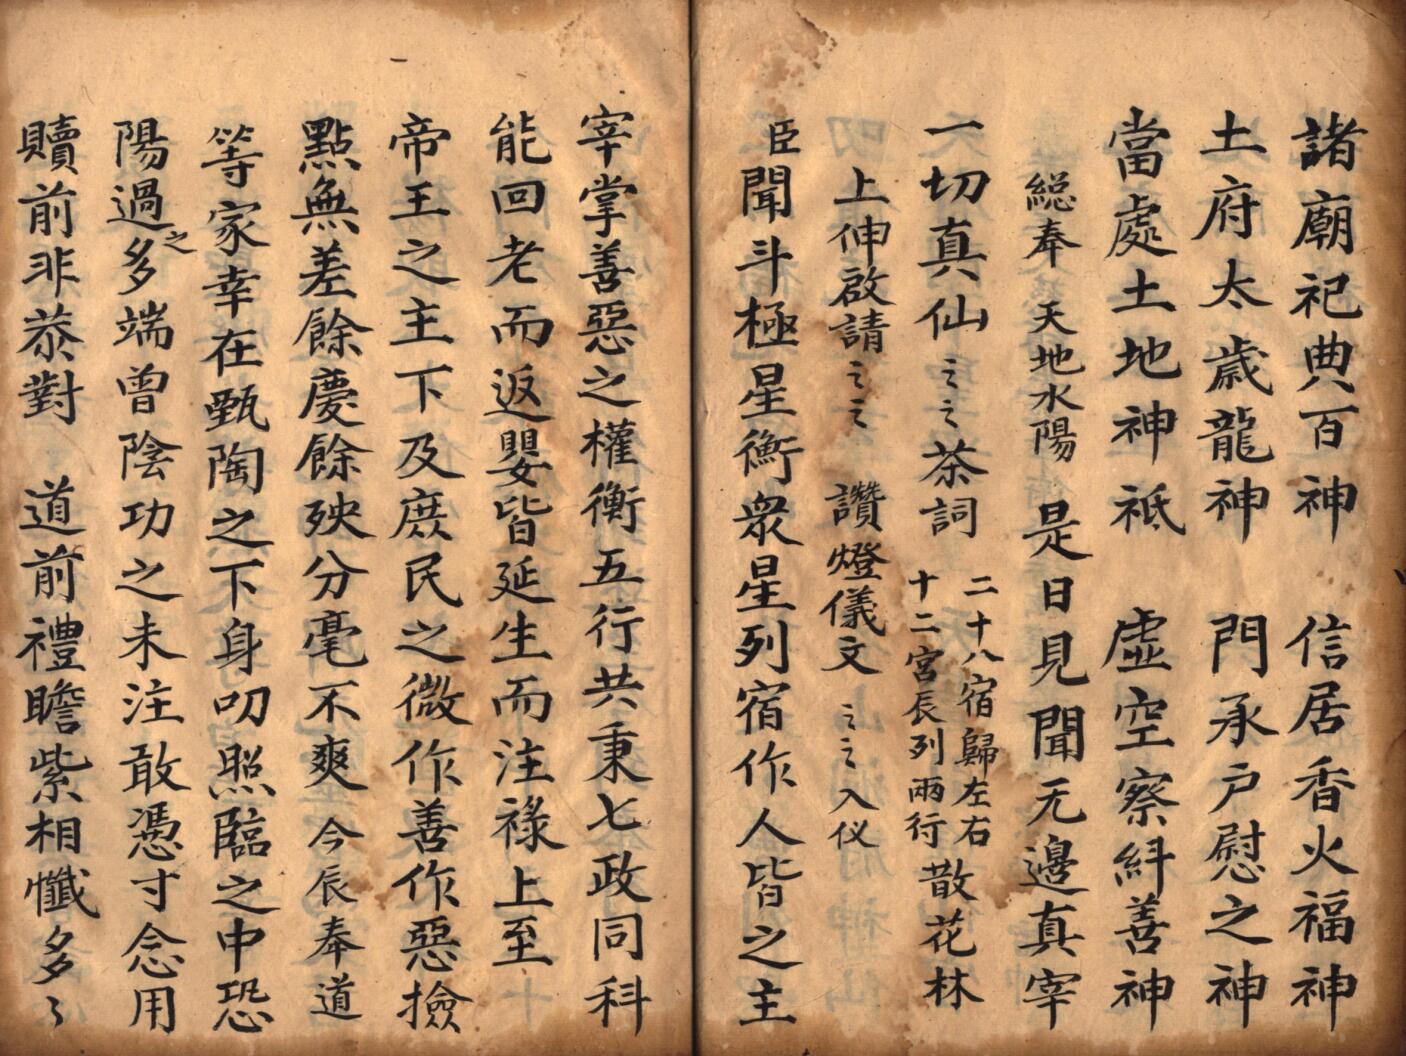 諸廟祀典百神　信居香火福神
土府太歲龍神　門承户慰之神
當處土地神祇　虛空察糾善神
緫奉天地水陽　是日見聞无邊真宰
一切真仙〻〻茶詞　二十八宿歸左右
十二宮辰列兩行　散花林
上伸啟請〻〻　讚燈儀文〻〻入仪
臣聞斗極星衡眾星列宿作人皆之主
宰掌善惡之權衡五行共秉七政同科
能回老而返嬰皆延生而注祿上至
帝王之主下及庶民之微作善作惡撿
點無差餘慶餘殃分毫不爽今辰奉道
等家幸在甄陶之下身叨照臨之中恐
陽過之多端曾陰功之未注敢憑寸念用
贖前非恭對　道前禮瞻紫相懺多〻